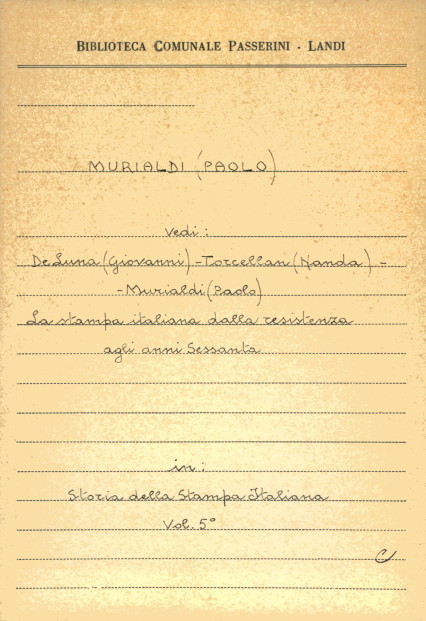 BIBLIOTECA COMUNALE PASSERINI - LANDI
MURIALDI (PAOLO)
Vedi:
De Luna (Giovanni) - Torcellan (Nanda) -
- Murialdi (Paolo)
La stampa italiana dalla resistenza
agli anni Sessanta
in:
Storia della Stampa Italiana
Vol. 5°